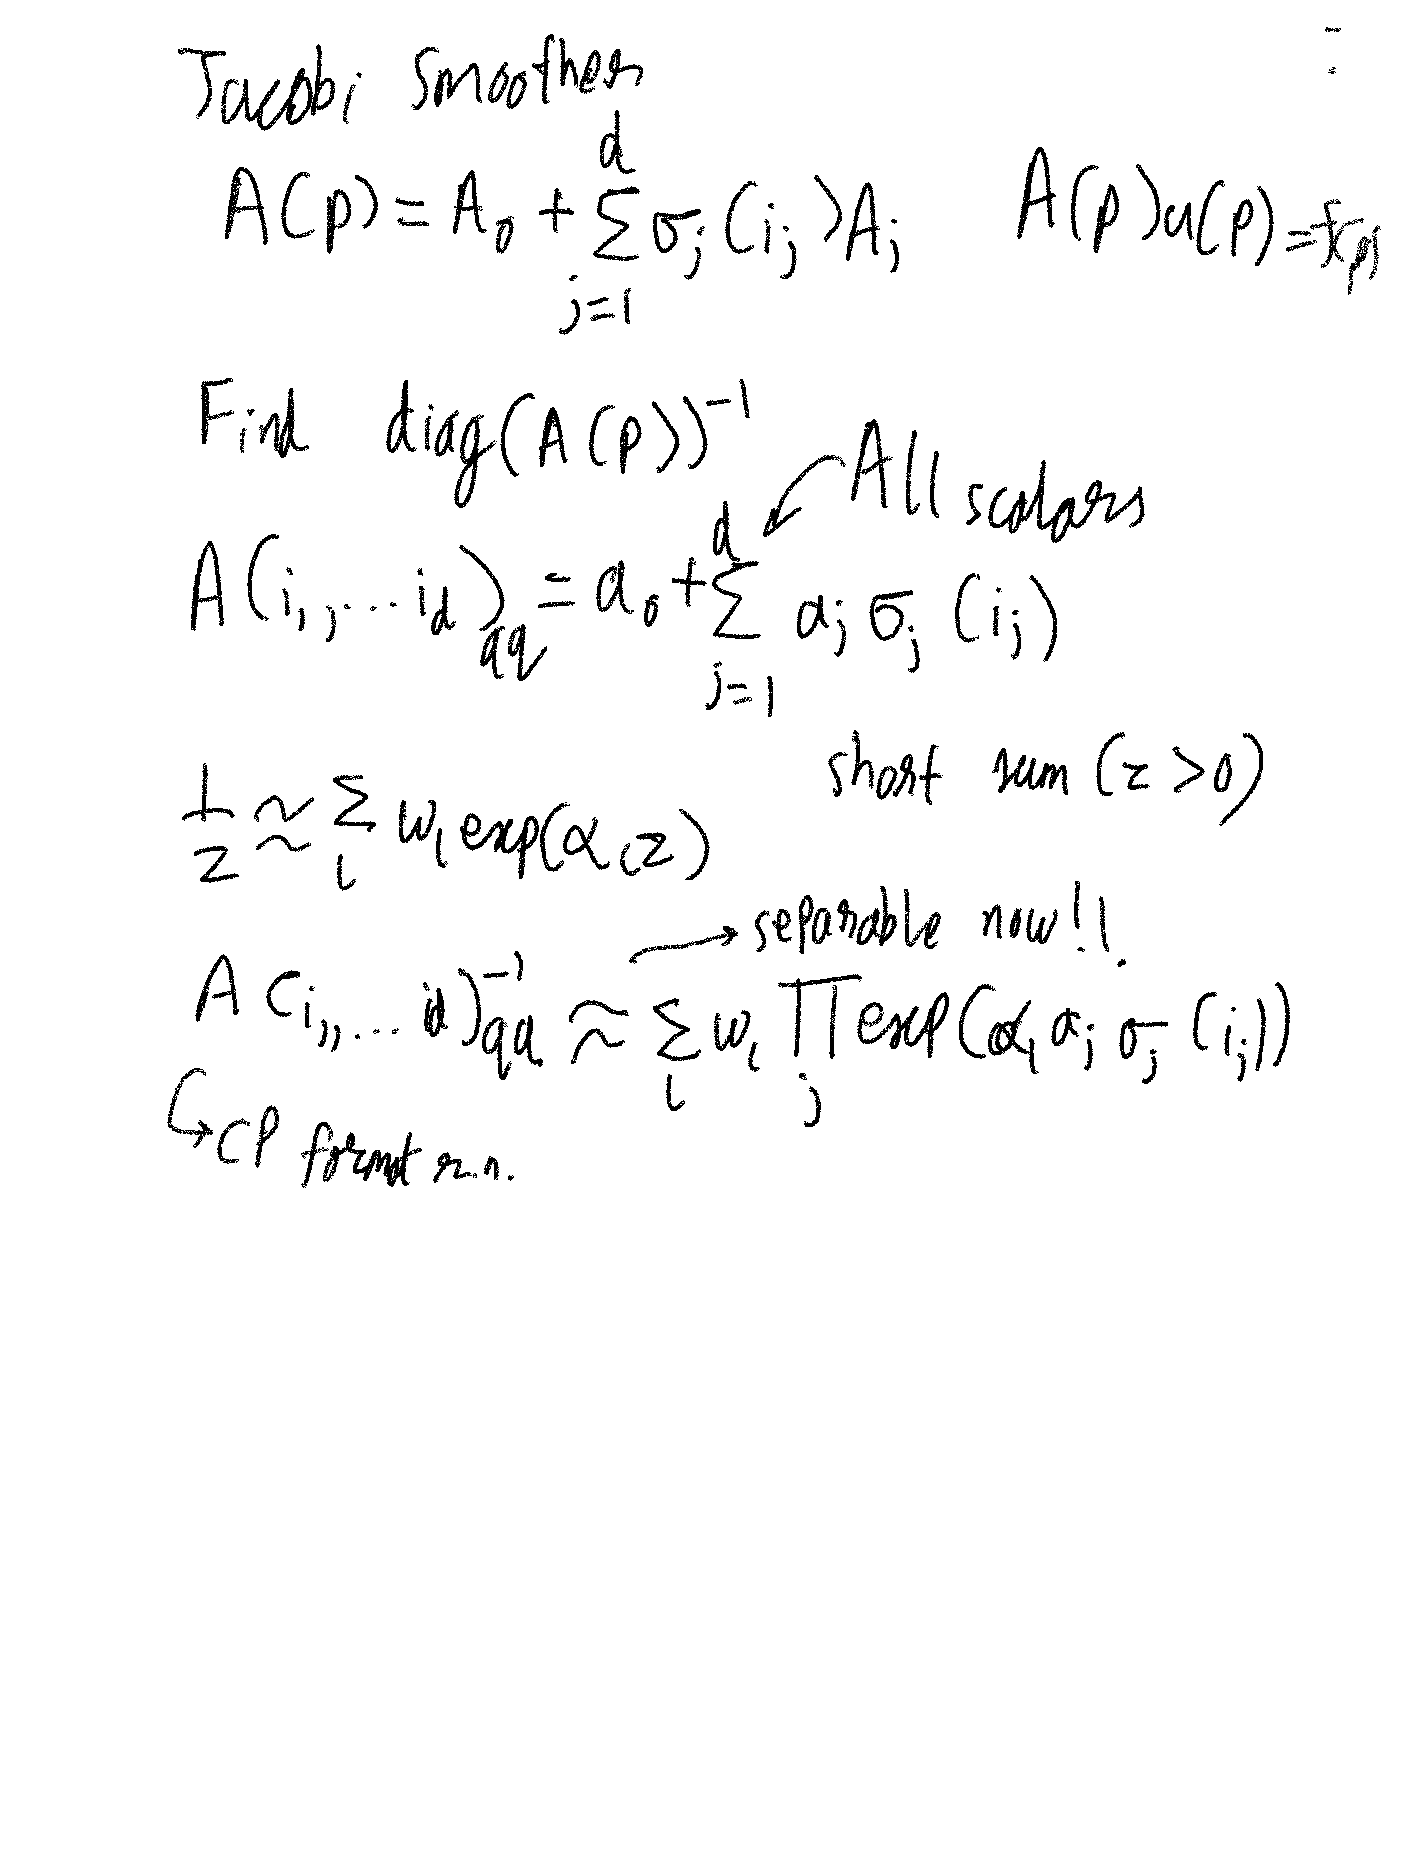 Jacobi smoother
A(p) = A₀ + Σ_{j=1}^{d} σ_j(i_j) A_j    A(p)u(p) = f(p)
Find diag(A(p))⁻¹
All scalars
A(i₁, ... i_d)_{qq} = a₀ + Σ_{j=1}^{d} a_j σ_j(i_j)
short sum (z > 0)
1/z ≈ Σ_l w_l exp(α_l z)
→ separable now!!
A(i₁, ... i_d)⁻¹_{qq} ≈ Σ_l w_l Π_j exp(α_l a_j σ_j(i_j))
↳ CP format r.n.